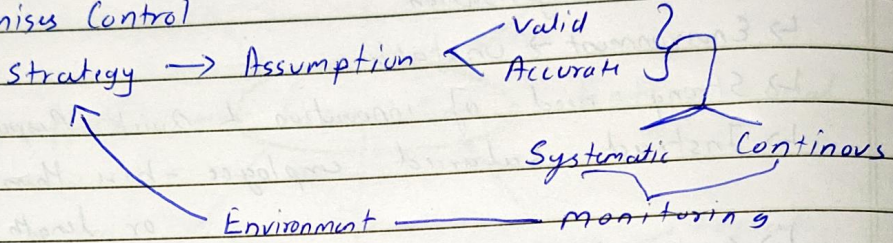 nises Control
Strategy → Assumption < Valid
Accurate
Systematic Continous
Environment — monitoring